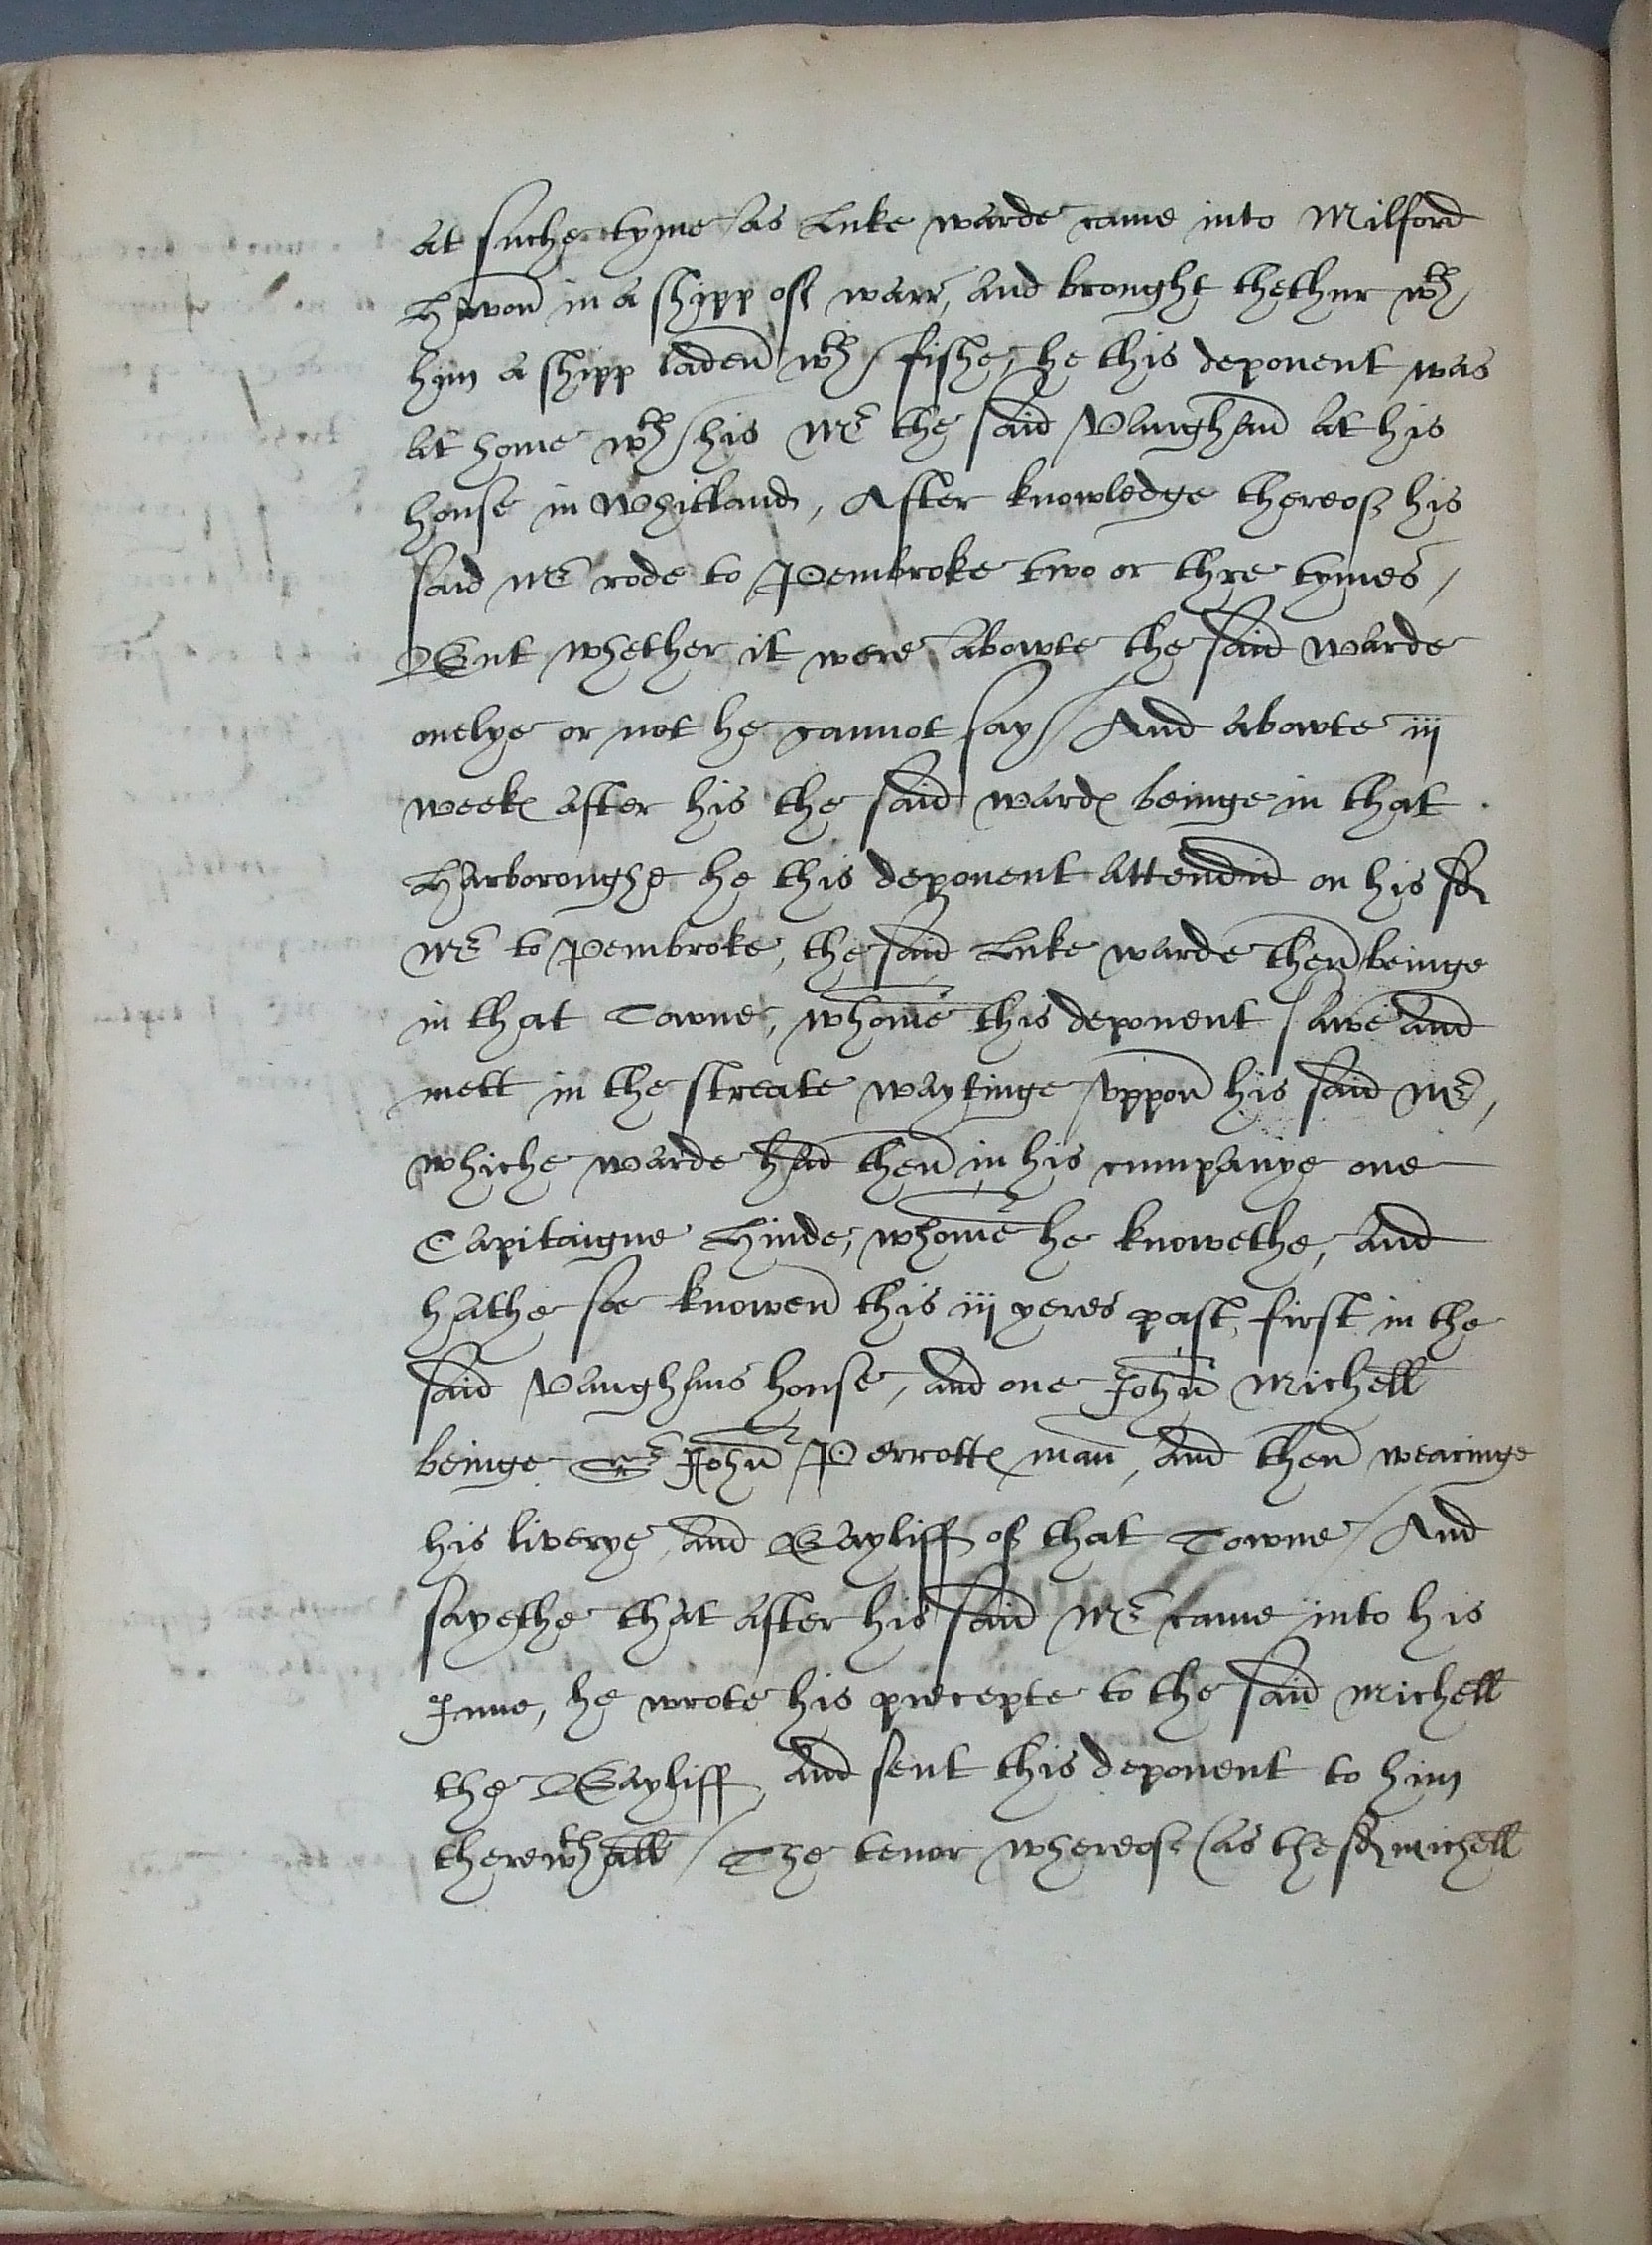 at suche tyme as Luke warde came into Milford
Havon in a shipp of warr, and brought thethur wth
him a shipp laden wth fishe, he this deponent was
at home wth his Mr the said Vaughan at his
house in Whitland, After knowledge thereof his
said Mr rode to Pembroke two or thre tymes /
But whether it were abowte the said warde
onelye or not he cannot say / And abowte iij
weekes after his the said wardes beinge in that
Harboroughe he this deponent attendid on his sd
Mr to Pembroke, the said Luke warde then beinge
in that Towne, whome this deponent sawe and
mett in the streate waytinge vppon his said Mr,
whiche warde had then in his cumpanye one
Capitaigne Hinde, whome he knowethe, and
hathe so knowen this iij yeres past, first in the
said Vaughans house, and one John Michell
beinge Sr John Perrottes man, and then wearinge
his liverye, and Bayliff of that Towne / And
sayethe that after his said Mr came into his
Inne, he wrote his precepte to the said Michell
the Bayliff, and sent this deponent to him
therewthall / The tenor whereof (as the sd michell